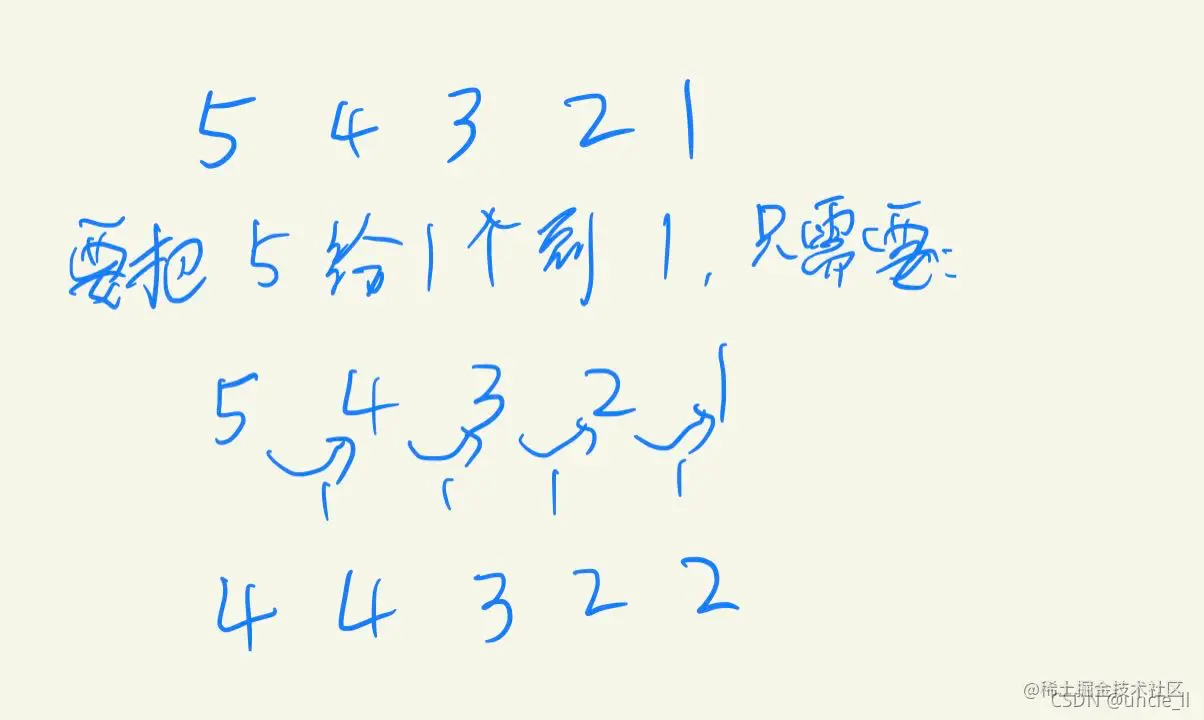 5 4 3 2 1
要把 5 给 1个 到 1, 只需要:
5 4 3 2 1
1 1 1 1
4 4 3 2 2
@稀土掘金技术社区
CSDN @uncle_ll